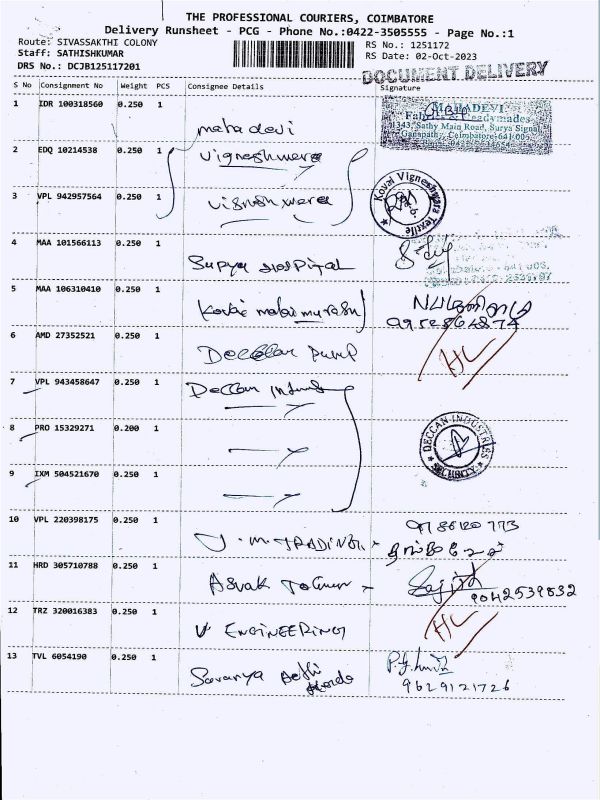 THE PROFESSIONAL COURIERS, COIMBATORE
Delivery Runsheet - PCG - Phone No.:0422-3505555 - Page No.:1
Route: SIVASSAKTHI COLONY
Staff: SATHISHKUMAR
DRS No.: DCJB125117201
RS No.: 1251172
RS Date: 02-Oct-2023
DOCUMENT DELIVERY
S No Consignment No Weight PCS Consignee Details Signature
1 IDR 100318560 0.250 1
maha devi
MAHADEVI
Readymades
1343, Sathy Main Road, Surya Signal,
Ganapathy, Coimbatore-641 006.
2 EDQ 10214538 0.250 1
vigneshwera
3 VPL 942957564 0.250 1
Kovai Vigneshwara Textile
4 MAA 101566113 0.250 1
Surya Hospital
5 MAA 106310410 0.250 1
Kovai malai murasu
6 AMD 27352521 0.250 1
Deccan pump
HL
7 VPL 943458647 0.250 1
Deccan
8 PRO 15329271 0.200 1
DECCAN INDUSTRIES
SECURITY
9 IXM 504521670 0.250 1
10 VPL 220398175 0.250 1
J.M. TRADING
11 HRD 305710788 0.250 1
Asvak
9042539832
12 TRZ 320016383 0.250 1
V ENGINEERING
HL
13 TVL 6054190 0.250 1
9629121726